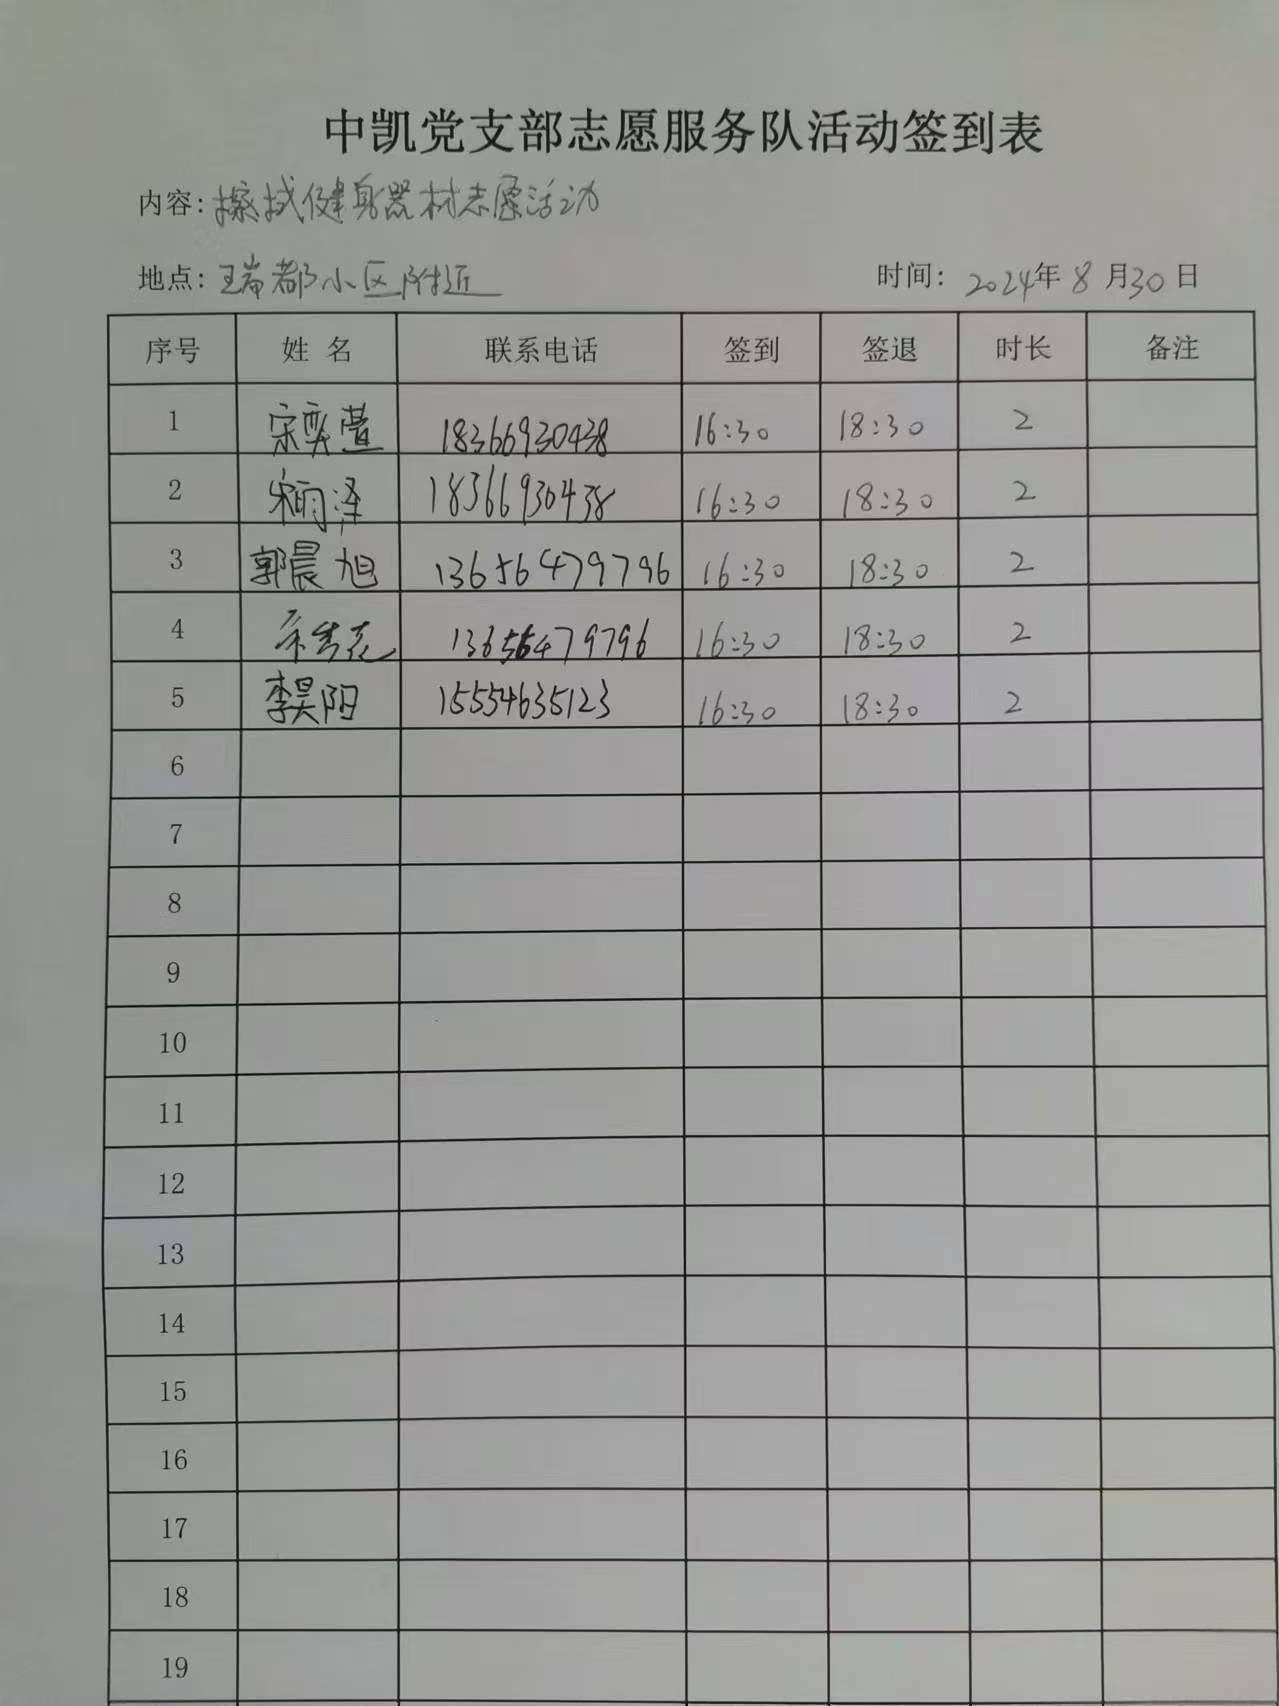 中凯党支部志愿服务队活动签到表
内容：擦拭健身器材志愿活动
地点：瑞都小区附近 时间：2024年8月30日
序号 姓名 联系电话 签到 签退 时长 备注
1 宋奕萱 18366930438 16:30 18:30 2
2 宋雨泽 18366930438 16:30 18:30 2
3 郭晨旭 13656479796 16:30 18:30 2
4 13656479796 16:30 18:30 2
5 李昊阳 15554635123 16:30 18:30 2
6
7
8
9
10
11
12
13
14
15
16
17
18
19